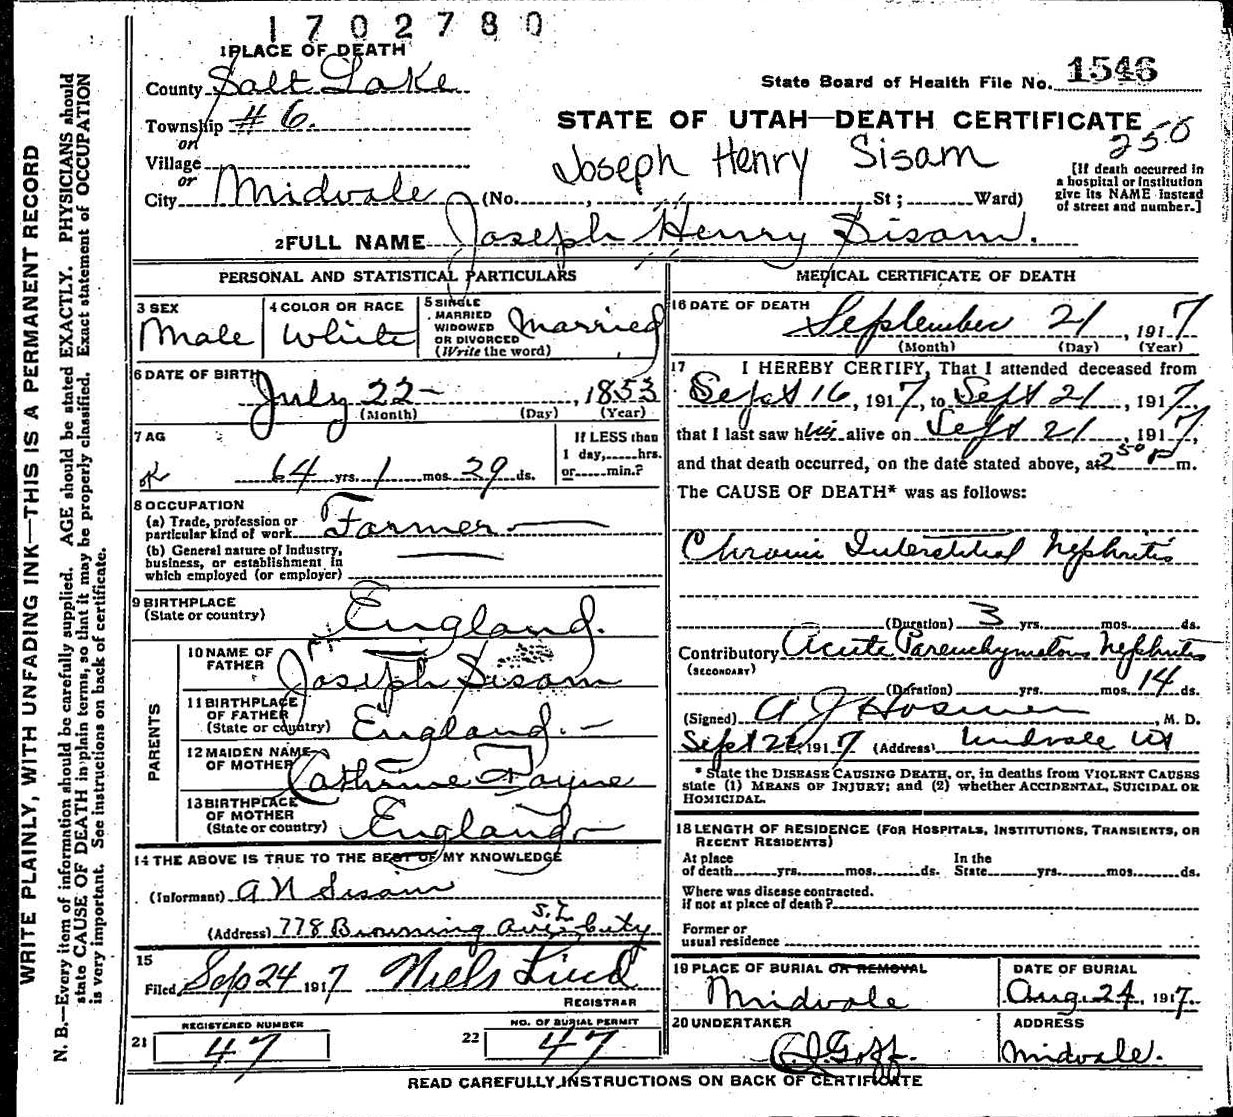 1702780
1 PLACE OF DEATH
County Salt Lake
State Board of Health File No. 1546
Township # 6.
or
STATE OF UTAH—DEATH CERTIFICATE
250
Village
or
Joseph Henry Sisam
[If death occurred in a hospital or institution give its NAME instead of street and number.]
City Midvale (No. , St ; Ward)
2 FULL NAME Joseph Henry Sisam.
PERSONAL AND STATISTICAL PARTICULARS
3 SEX Male
4 COLOR OR RACE White
5 SINGLE MARRIED WIDOWED OR DIVORCED (Write the word) Married
6 DATE OF BIRTH July 22 , 1853
(Month) (Day) (Year)
7 AG
64 yrs. 1 mos. 29 ds.
If LESS than 1 day, hrs. or min.?
8 OCCUPATION
(a) Trade, profession or particular kind of work Farmer
(b) General nature of Industry, business, or establishment in which employed (or employer)
9 BIRTHPLACE (State or country) England.
PARENTS
10 NAME OF FATHER Joseph Sisam
11 BIRTHPLACE OF FATHER (State or country) England.
12 MAIDEN NAME OF MOTHER Cathrine Payne
13 BIRTHPLACE OF MOTHER (State or country) England
14 THE ABOVE IS TRUE TO THE BEST OF MY KNOWLEDGE
(Informant) A N Sisam
(Address) 778 Browning Ave S.L. City
15
Filed Sep 24 1917 Niels Lind
REGISTRAR
21 REGISTERED NUMBER 47
22 NO. OF BURIAL PERMIT 47
MEDICAL CERTIFICATE OF DEATH
16 DATE OF DEATH September 21 , 1917
(Month) (Day) (Year)
17 I HEREBY CERTIFY, That I attended deceased from
Sept 16, 1917, to Sept 21, 1917,
that I last saw him alive on Sept 21, 1917,
and that death occurred, on the date stated above, at 2 50 P m.
The CAUSE OF DEATH* was as follows:
Chronic Interstitial Nephritis
(Duration) 3 yrs. mos. ds.
Contributory Acute Parenchymatous Nephritis
(SECONDARY)
(Duration) yrs. mos. 14 ds.
(Signed) A J Hosmer, M. D.
Sept 1917 (Address) Midvale Ut
* State the DISEASE CAUSING DEATH, or, in deaths from VIOLENT CAUSES
state (1) MEANS OF INJURY; and (2) whether ACCIDENTAL, SUICIDAL OR
HOMICIDAL.
18 LENGTH OF RESIDENCE (FOR HOSPITALS, INSTITUTIONS, TRANSIENTS, OR
RECENT RESIDENTS)
At place of death yrs. mos. ds. In the State yrs. mos. ds.
Where was disease contracted.
if not at place of death ?
Former or
usual residence
19 PLACE OF BURIAL OR REMOVAL Midvale
DATE OF BURIAL Aug. 24, 1917.
20 UNDERTAKER Goff.
ADDRESS Midvale.
READ CAREFULLY INSTRUCTIONS ON BACK OF CERTIFICATE
WRITE PLAINLY, WITH UNFADING INK—THIS IS A PERMANENT RECORD
N. B.—Every item of information should be carefully supplied. AGE should be stated EXACTLY. PHYSICIANS should
state CAUSE OF DEATH in plain terms, so that it may be properly classified. Exact statement of OCCUPATION
is very important. See instructions on back of certificate.